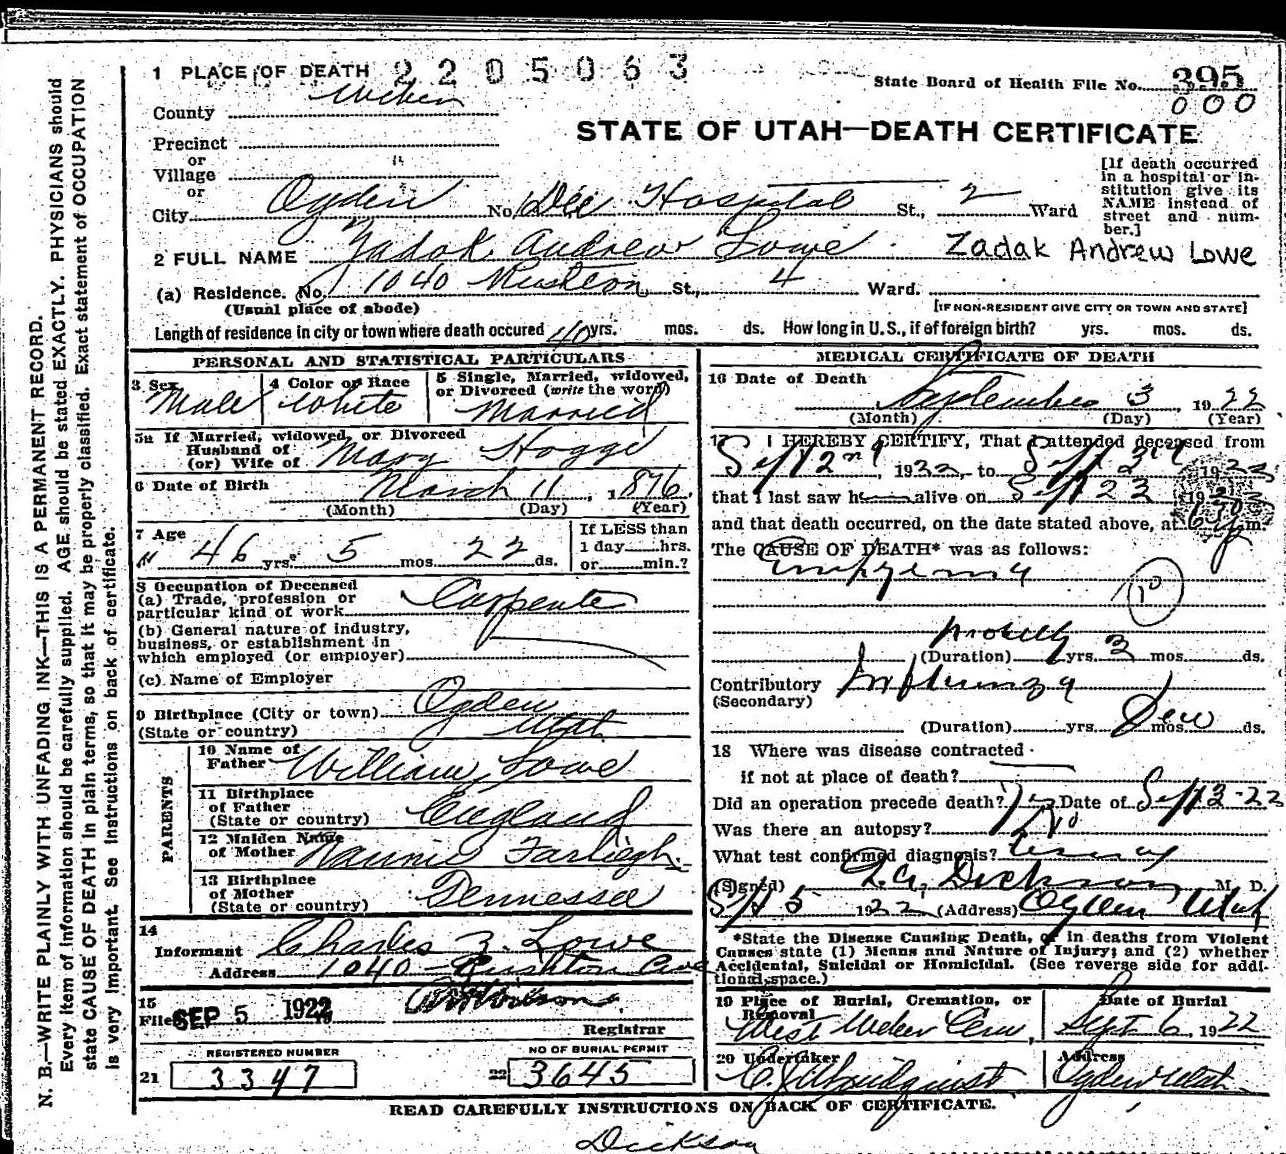 1 PLACE OF DEATH 2205063
State Board of Health File No. 395
000
County Weber
STATE OF UTAH—DEATH CERTIFICATE
Precinct
or
Village
or
City Ogden No. Dee Hospital St., 2 Ward
[If death occurred
in a hospital or in-
stitution give its
NAME instead of
street and num-
ber.]
2 FULL NAME Zadok Andrew Lowe
Zadak Andrew Lowe
(a) Residence. No. 1040 Rushton St., 4 Ward.
(Usual place of abode)
[IF NON-RESIDENT GIVE CITY OR TOWN AND STATE]
Length of residence in city or town where death occured 40 yrs. mos. ds. How long in U. S., if of foreign birth? yrs. mos. ds.
PERSONAL AND STATISTICAL PARTICULARS
3 Sex Male
4 Color or Race White
5 Single, Married, widowed,
or Divorced (write the word)
Married
5a If Married, widowed, or Divorced
Husband of
(or) Wife of Mary Hogge
6 Date of Birth March 11, 1876.
(Month) (Day) (Year)
7 Age
46 yrs. 5 mos. 22 ds.
If LESS than
1 day......hrs.
or......min.?
8 Occupation of Deceased
(a) Trade, profession or
particular kind of work Carpenter
(b) General nature of industry,
business, or establishment in
which employed (or employer)
(c) Name of Employer
9 Birthplace (City or town) Ogden
(State or country) Utah
PARENTS
10 Name of
Father William Lowe
11 Birthplace
of Father
(State or country) England
12 Maiden Name
of Mother Nannie
13 Birthplace
of Mother
(State or country) Tennessee
14
Informant Charles Z. Lowe
Address 1040 Rushton Ave
15
Filed SEP 5 1922
Registrar
REGISTERED NUMBER
21 3347
NO OF BURIAL PERMIT
22 3645
MEDICAL CERTIFICATE OF DEATH
16 Date of Death
September 3 1922
(Month) (Day) (Year)
17 I HEREBY CERTIFY, That I attended deceased from
Sept 2nd, 1922, to Sept 3rd 1922
that I last saw h alive on Sept 23
and that death occurred, on the date stated above, at 6 m.
The CAUSE OF DEATH* was as follows:
Empyema
10
probably
(Duration) yrs. 3 mos. ds.
Contributory Influenza
(Secondary)
(Duration) yrs. mos. ds.
18 Where was disease contracted
if not at place of death?
Did an operation precede death? Yes Date of Sept 3-22
Was there an autopsy? No
What test confirmed diagnosis?
(Signed) Dickson M. D.
Sept 5 1922 (Address) Ogden Utah
*State the Disease Causing Death, or in deaths from Violent
Causes state (1) Means and Nature of Injury; and (2) whether
Accidental, Suicidal or Homicidal. (See reverse side for addi-
tional space.)
19 Place of Burial, Cremation, or
Removal
West Weber Cem,
Date of Burial
Sept 6, 1922
20 Undertaker
Address
Ogden Utah
READ CAREFULLY INSTRUCTIONS ON BACK OF CERTIFICATE.
Dickson
N. B.—WRITE PLAINLY WITH UNFADING INK—THIS IS A PERMANENT RECORD.
Every item of information should be carefully supplied. AGE should be stated EXACTLY. PHYSICIANS should
state CAUSE OF DEATH in plain terms, so that it may be properly classified. Exact statement of OCCUPATION
is very important. See instructions on back of certificate.